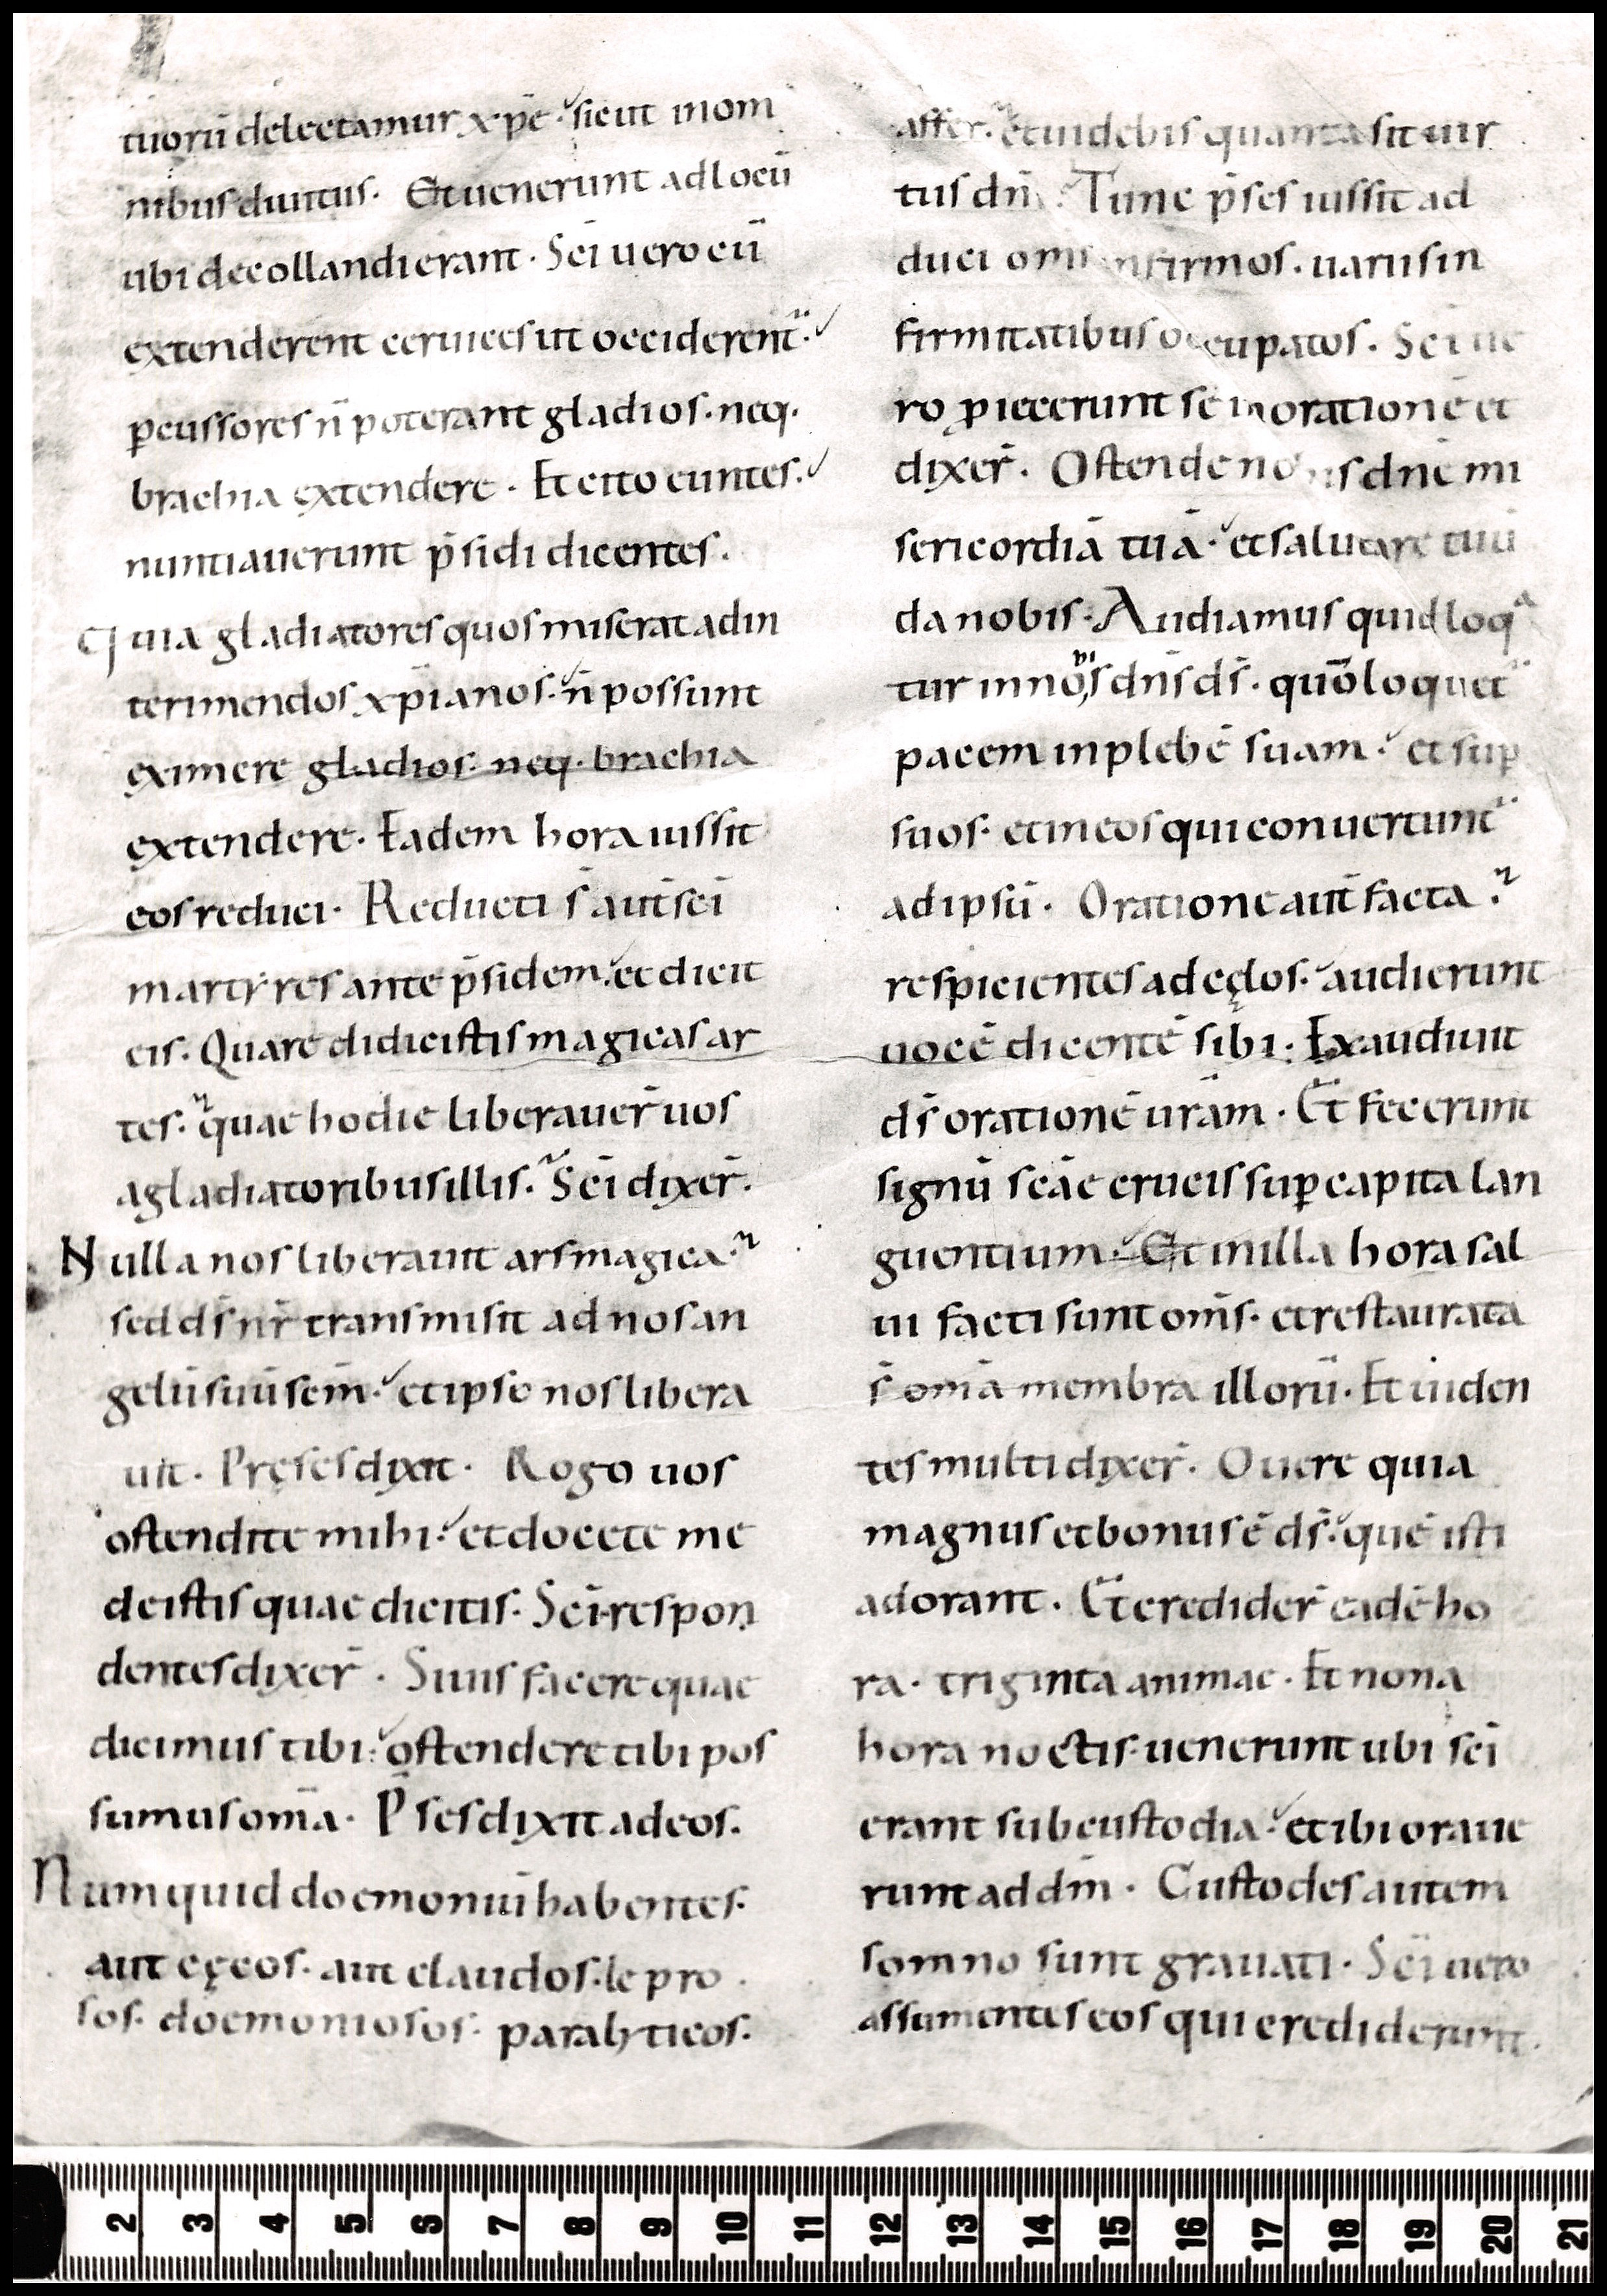 tuorū delectamur xp̄e· sicut in om
nibus diuitiis· Et uenerunt ad locū
ubi decollandi erant· Sc̄i uero cū
extenderent ceruices ut occiderent᷑·
p̄cussores n̄ poterant gladios· neq·
brachia extendere· Et cito euntes·
nuntiauerunt p̄sidi dicentes·
Quia gladiatores quos miserat ad in
terimendos xp̄ianos· n̄ possunt
eximere gladios· neq· brachia
extendere· Eadem hora iussit
eos reduci· Reducti s̄ aut̄ sc̄i
martyres ante p̄sidem· et dicit
eis· Quare didicistis magicas ar
tes· quae hodie liberauer̄ uos
a gladiatoribus illis· Sc̄i dixer̄·
Nulla nos liberauit ars magica·
sed d̄s nr̄ transmisit ad nos an
gelū suū sc̄m· et ipse nos libera
uit· Pręses dixit· Rogo uos
ostendite mihi· et docete me
de istis quae dicitis· Sc̄i respon
dentes dixer̄· Si uis facere quae
dicimus tibi· ostendere tibi pos
sumus om̄a· P̄ses dixit ad eos·
Numquid doemoniū habentes·
aut cęcos· aut claudos· lepro
sos· doemoniosos· paralyticos·
affer· et uidebis quanta sit uir
tus dn̄i· Tunc p̄ses iussit ad
duci om̄s infirmos· uariis in
firmitatibus occupatos· Sc̄i ue
ro ꝓiecerunt se in orationē et
dixer̄· Ostende nobis dn̄e mi
sericordiā tuā· et salutare tuū
da nobis· Audiamus quid loqa
tur in nobis dn̄s d̄s· quō loquet᷑
pacem in plebē suam· et sup̄
suos· et in eos qui conuertunt᷑
ad ipsū· Oratione aut̄ facta·
respicientes ad cęlos· audierunt
uocē dicentē sibi· Exaudiuit
d̄s orationē ur̄am· Et fecerunt
signū sc̄ae crucis sup̄ capita lan
guentium· Et in illa hora sal
ui facti sunt om̄s· et restaurata
s̄ om̄ia membra illorū· Et uiden
tes multi dixer̄· O uere quia
magnus et bonus ē d̄s· quē isti
adorant· Et credider̄ eadē ho
ra· triginta animae· Et nona
hora noctis uenerunt ubi sc̄i
erant sub custodia· et ibi oraue
runt ad dn̄m· Custodes autem
somno sunt grauati· Sc̄i uero
assumentes eos qui crediderunt·
2 3 4 5 6 7 8 9 10 11 12 13 14 15 16 17 18 19 20 21